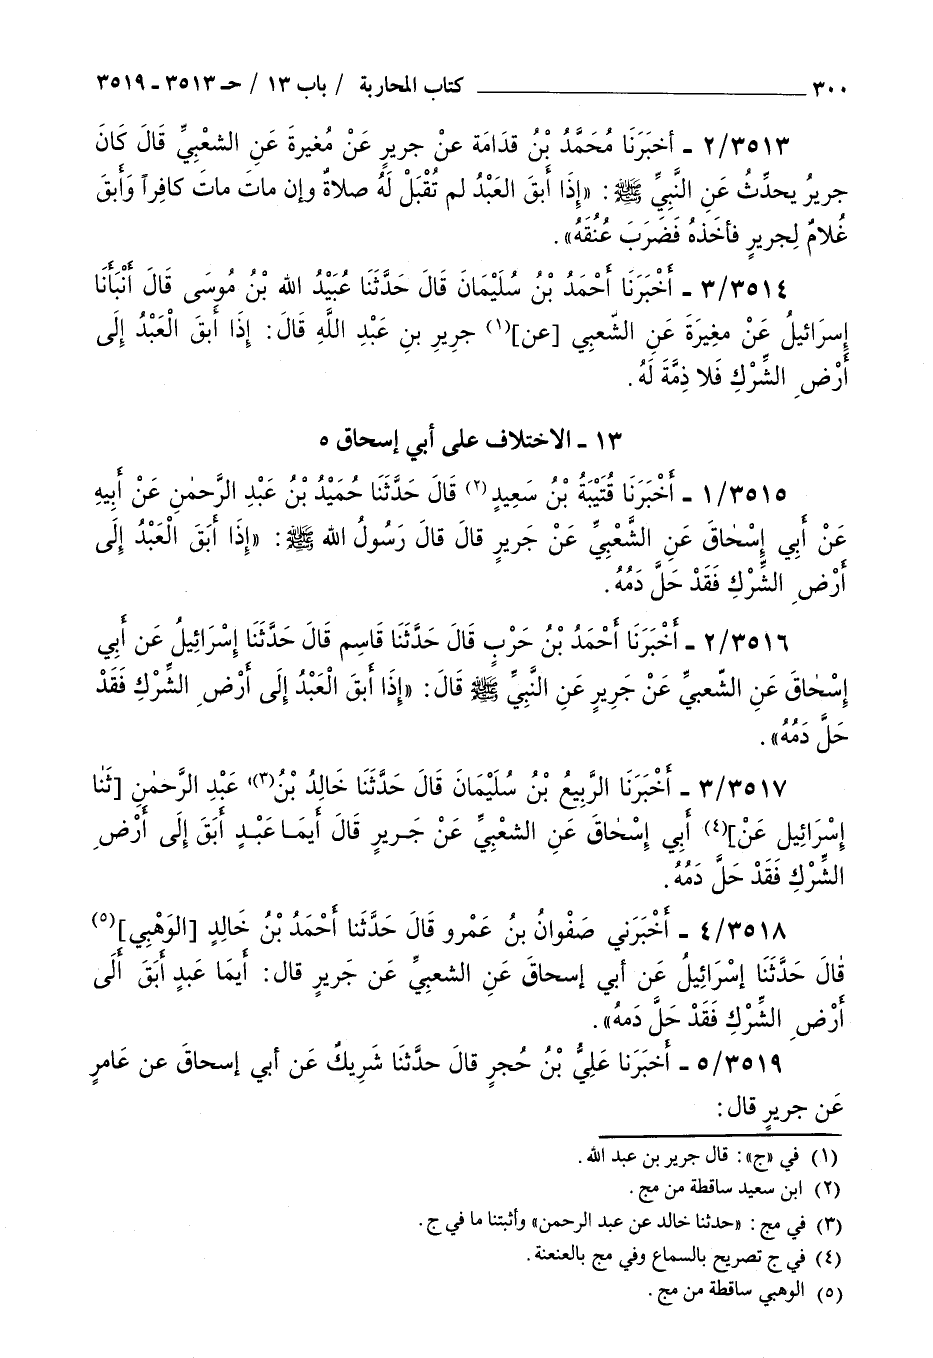 ٣٠٠ ـــــــــــــــــــــــــ كتاب المحاربة / باب ١٣ / حـ ٣٥١٣ ـ ٣٥١٩
٢/٣٥١٣ ـ أخبَرَنَا مُحَمَّدُ بْنُ قدَامَة عنْ جريرٍ عَنْ مُغيرةَ عَنِ الشعْبِيِّ قَالَ كَانَ
جريرُ يحدِّثُ عَنِ النَّبيِّ ﷺ: «إِذَا أَبقَ العَبْدُ لم تُقْبَلْ لَهُ صلاةٌ وإن ماتَ ماتَ كافِراً وَأَبقَ
غُلامٌ لِجريرٍ فأخَذهُ فَضَرَبَ عُنُقَهُ».
٣/٣٥١٤ ـ أَخْبَرَنَا أَحْمَدُ بْنُ سُلَيْمَانَ قَالَ حَدَّثَنَا عُبَيْدُ الله بْنُ مُوسَى قَالَ أَنْبَأَنَا
إِسرَائيلُ عَنْ مغِيرَةَ عَنِ الشّعبِي [عن](١) جريرِ بنِ عَبْدِ اللَّهِ قَالَ: إِذَا أَبقَ الْعَبْدُ إِلَى
أَرْضِ الشِّرْكِ فَلا ذِمَّةَ لَهُ.
١٣ ـ الاختلاف على أبي إسحاق ٥
١/٣٥١٥ ـ أَخْبَرَنَا قُتَيْبَةُ بْنُ سَعِيدٍ(٢) قَالَ حَدَّثَنَا حُمَيْدُ بْنُ عَبْدِ الرَّحمٰنِ عَنْ أَبِيهِ
عَنْ أَبِي إِسْحٰاقَ عَنِ الشَّعْبِيِّ عَنْ جَريرٍ قالَ قالَ رَسُولُ الله ﷺ: «إِذَا أَبَقَ الْعَبْدُ إِلَى
أَرْضِ الشِّرْكِ فَقَدْ حَلَّ دَمُهُ.
٢/٣٥١٦ ـ أَخْبَرَنَا أَحْمَدُ بْنُ حَرْبٍ قَالَ حَدَّثَنَا قَاسِم قَالَ حَدَّثَنَا إِسْرَائِيلُ عَن أَبِي
إِسْحٰاقَ عَنِ الشّعبيِّ عَنْ جَرِيرٍ عَنِ النَّبِيِّ ﷺ قَالَ: «إِذَا أَبقَ الْعَبْدُ إِلَى أَرْضِ الشِّرْكِ فَقَدْ
حَلَّ دَمُهُ».
٣/٣٥١٧ ـ أَخْبَرَنَا الرَّبِيعُ بْنُ سُلَيْمَانَ قَالَ حَدَّثَنَا خَالِدُ بْنُ(٣) عَبْدِ الرَّحمٰنِ [ثَنَا
إِسْرَائِيل عَنْ](٤) أَبِي إِسْحٰاقَ عَنِ الشعْبِيِّ عَنْ جَـريرٍ قَالَ أَيمَـا عَبْـدٍ أَبَقَ إِلَى أَرْضِ
الشِّرْكِ فَقَدْ حَلَّ دَمُهُ.
٤/٣٥١٨ ـ أَخْبَرَني صَفْوانُ بنُ عَمْرو قَالَ حَدَّثَنا أَحْمَدُ بْنُ خَالِدٍ [الوَهْبِي](٥)
قَالَ حَدَّثَنَا إسْرَائِيلُ عَن أبي إسحاقَ عَنِ الشعبيِّ عَن جَريرٍ قال: أيمَا عَبدٍ أَبَقَ أَلَى
أَرْضِ الشِّرْكِ فَقَدْ حَلَّ دَمهُ».
٥/٣٥١٩ ـ أَخبَرَنا عَلِيُّ بْنُ حُجرٍ قالَ حدَّثَنا شَرِيكٌ عَن أبي إسحاقَ عن عَامرٍ
عَن جريرٍ قال:
(١) في «ج»: قال جرير بن عبد الله.
(٢) ابن سعيد ساقطة من مج.
(٣) في مج: «حدثنا خالد عن عبد الرحمن» وأثبتنا ما في ج.
(٤) في ج تصريح بالسماع وفي مج بالعنعنة.
(٥) الوهبي ساقطة من مج.